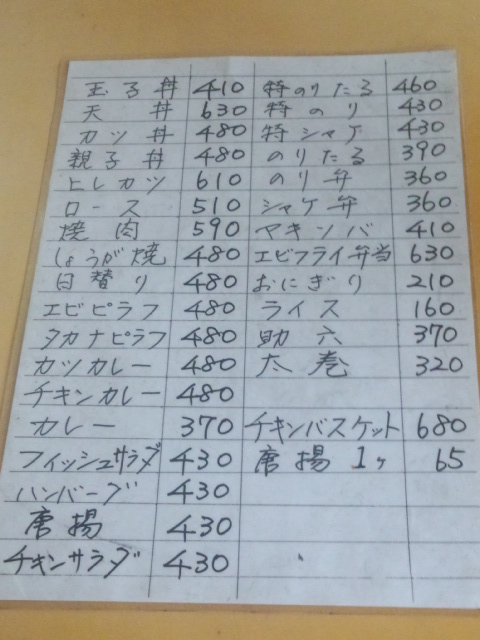 玉子丼 410
天丼 630
カツ丼 480
親子丼 480
ヒレカツ 610
ロース 510
焼肉 590
しょうが焼 480
日替り 480
エビピラフ 480
タカナピラフ 480
カツカレー 480
チキンカレー 480
カレー 370
フィッシュサラダ 430
ハンバーグ 430
唐揚 430
チキンサラダ 430
特のりたる 460
特のり 430
特シャケ 430
のりたる 390
のり弁 360
シャケ弁 360
ヤキソバ 410
エビフライ弁当 630
おにぎり 210
ライス 160
助六 370
太巻 320
チキンバスケット 680
唐揚1ヶ 65